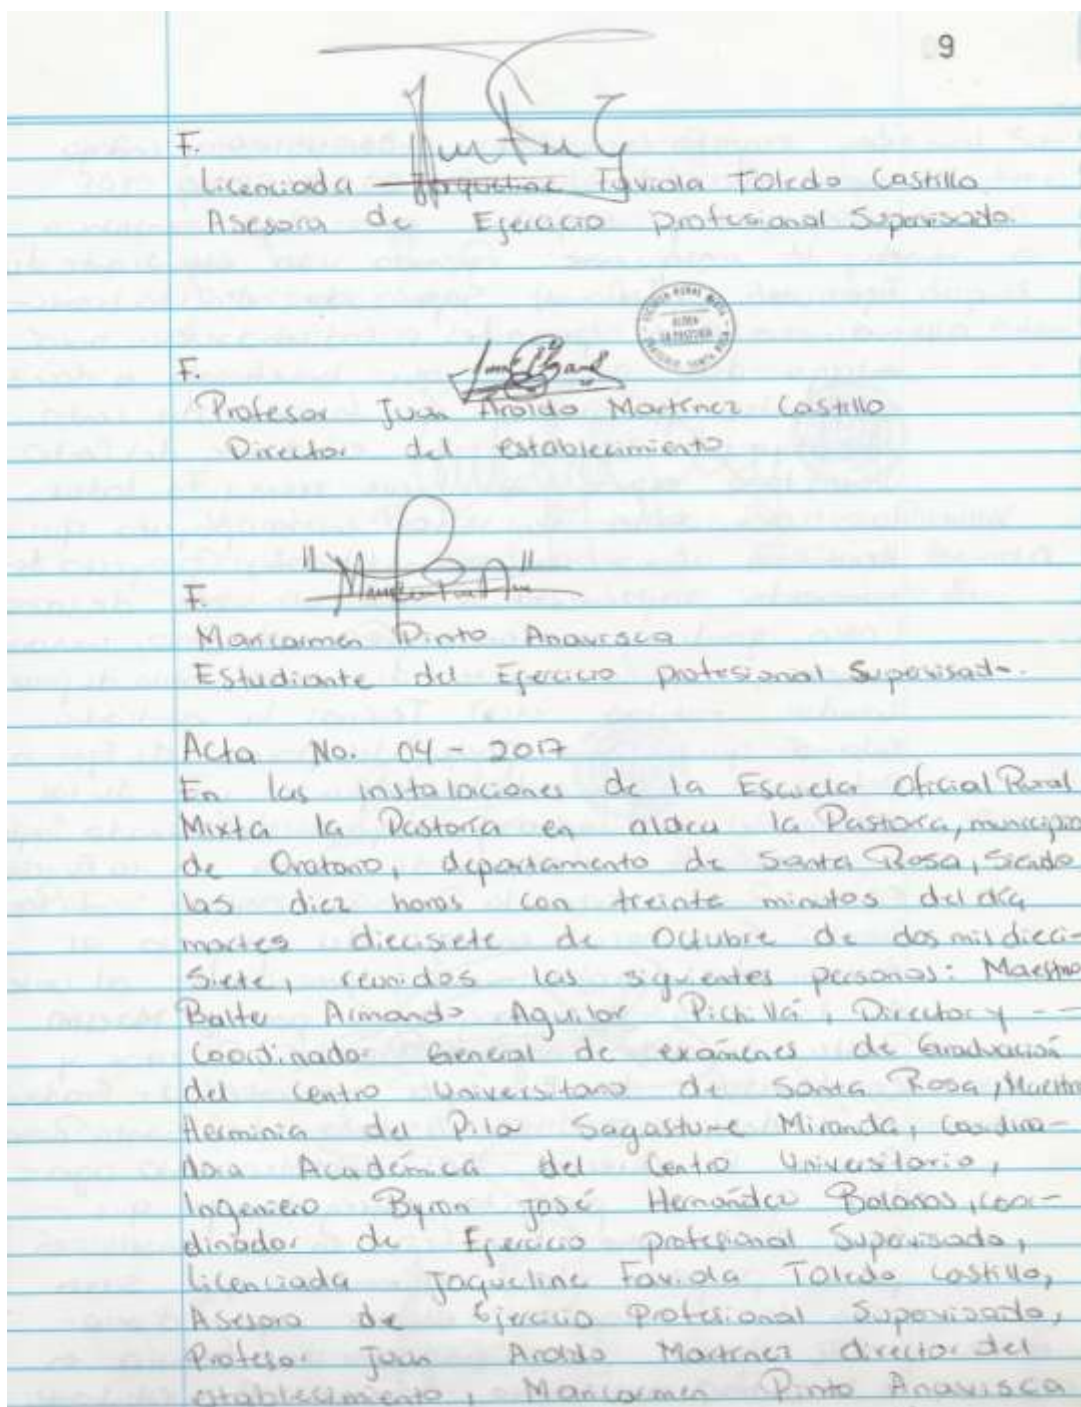 9
F.
Licenciada Jaqueline Faviola Toledo Castillo
Asesora de Ejercicio profesional Supervisado.
F.
ESCUELA RURAL MIXTA
ALDEA
LA PASTORIA
ORATORIO, SANTA ROSA
Profesor Juan Aroldo Martínez Castillo
Director del establecimiento
F.
Maricarmen Pinto Anavisca
Estudiante del Ejercicio profesional Supervisado.
Acta No. 04 - 2017
En las instalaciones de la Escuela Oficial Rural
Mixta la Pastoría en aldea la Pastora, municipio
de Oratorio, departamento de Santa Rosa, Siendo
las diez horas con treinta minutos del día
martes diecisiete de Octubre de dos mil dieci-
Siete, reunidos las siguientes personas: Maestro
Balter Armando Aguilar Pichillá, Director y --
Coordinador General de exámenes de Graduación
del Centro Universitario de Santa Rosa, Maestra
Herminia del Pilar Sagastume Miranda, Coordina-
dora Académica del Centro Universitario,
Ingeniero Byron José Hernández Bolaños, coor-
dinador de Ejercicio profesional Supervisado,
Licenciada Jaqueline Faviola Toledo Castillo,
Asesora de Ejercicio Profesional Supervisado,
Profesor Juan Aroldo Martínez director del
establecimiento, Maricarmen Pinto Anavisca